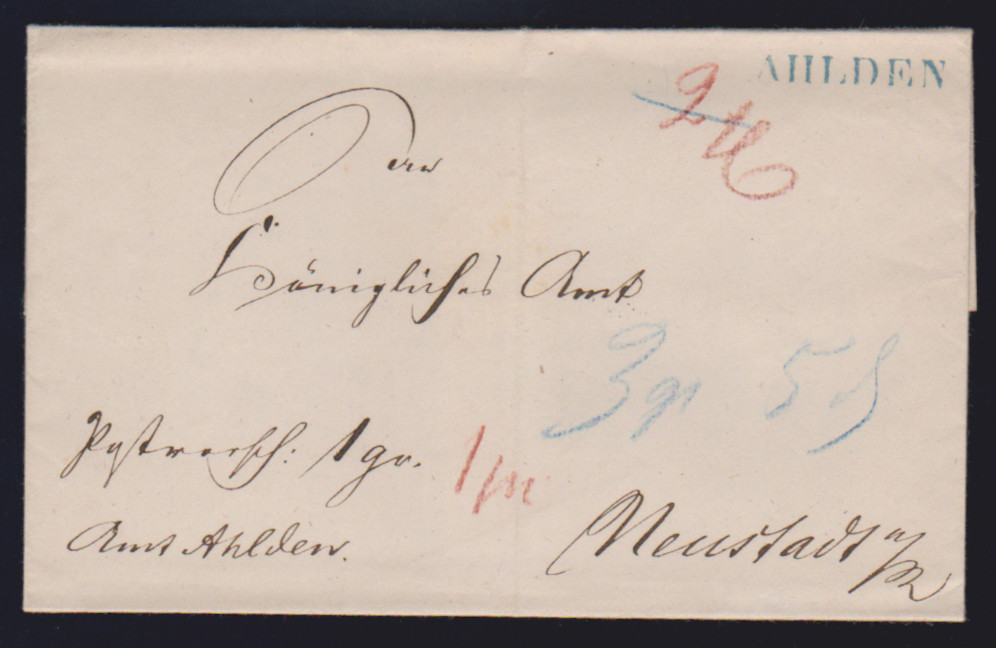 AHLDEN
Königliches Amt
3 gr 5 d
Postvorsch: 1 gr.
Amt Ahlden.
Neustadt a/R